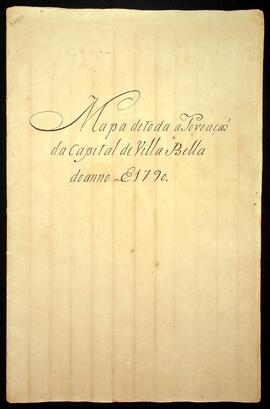 Mapa detoda a Povoaçaõ
da Capital de Villa Bella
do anno E 1790.